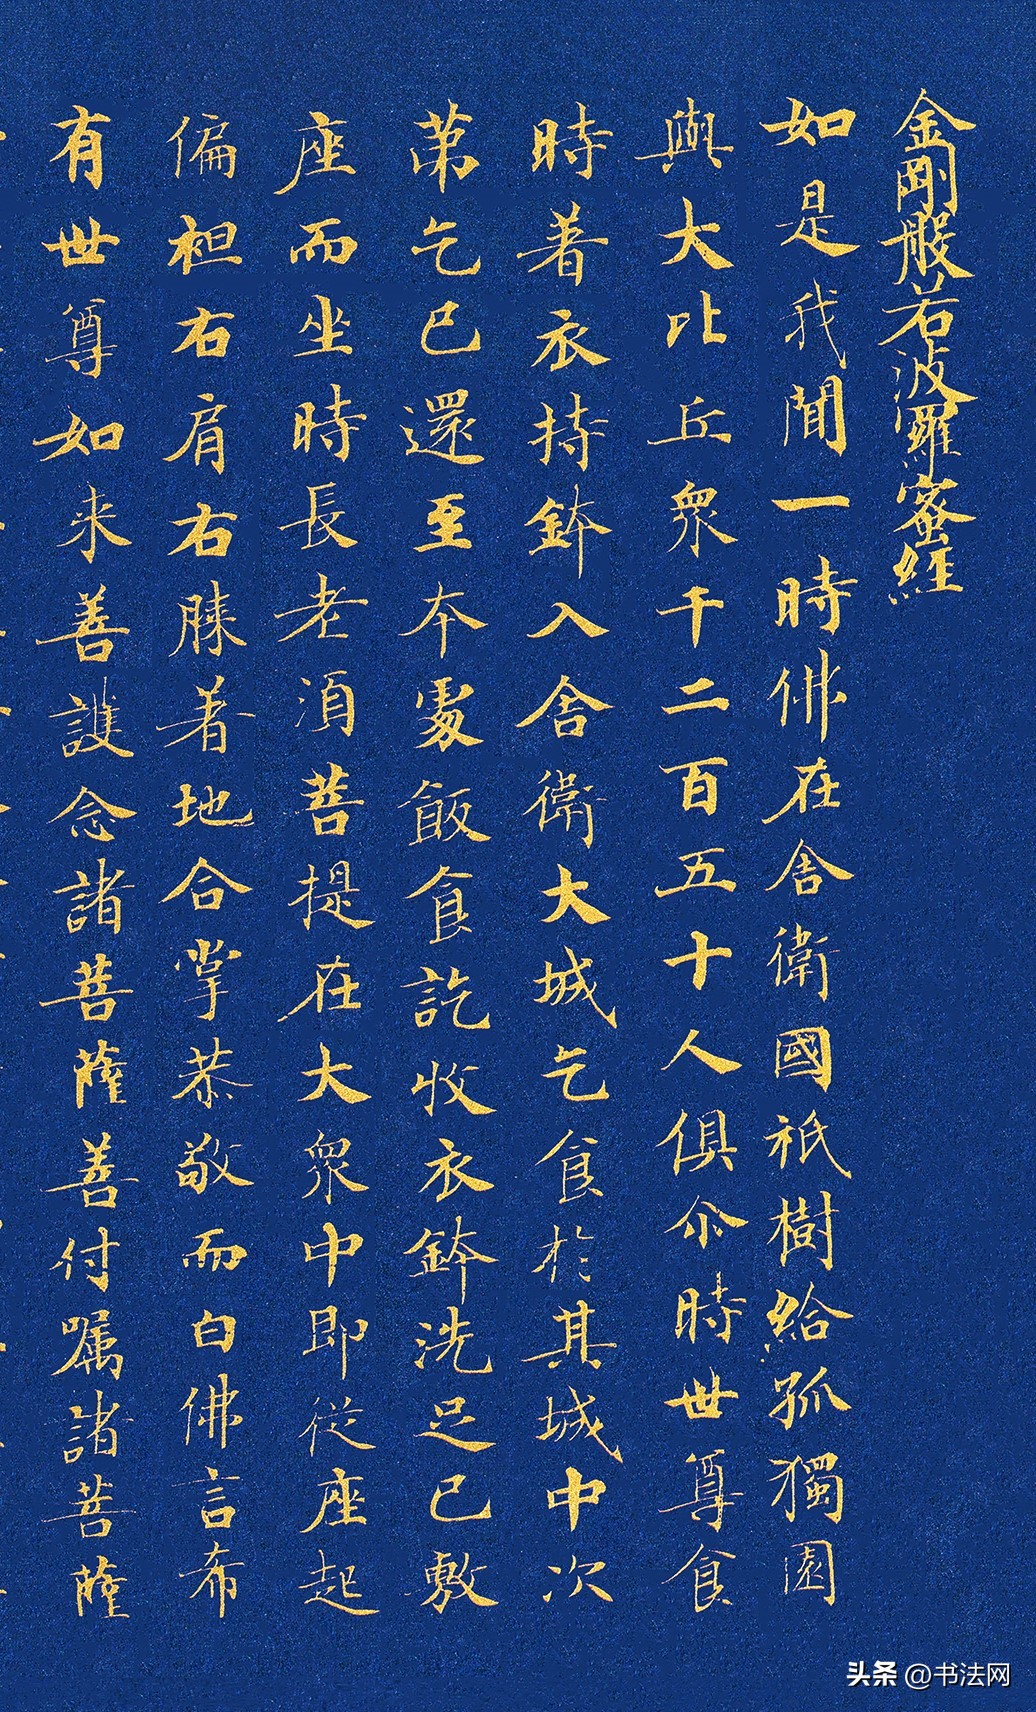 金剛般若波羅蜜經
如是我聞一時佛在舍衛國祇樹給孤獨園
與大比丘眾千二百五十人俱尒時世尊食
時著衣持鉢入舍衛大城乞食於其城中次
第乞已還至本處飯食訖收衣鉢洗足已敷
座而坐時長老須菩提在大眾中即從座起
偏袒右肩右膝著地合掌恭敬而白佛言希
有世尊如来善護念諸菩薩善付嘱諸菩薩
头条 @书法网